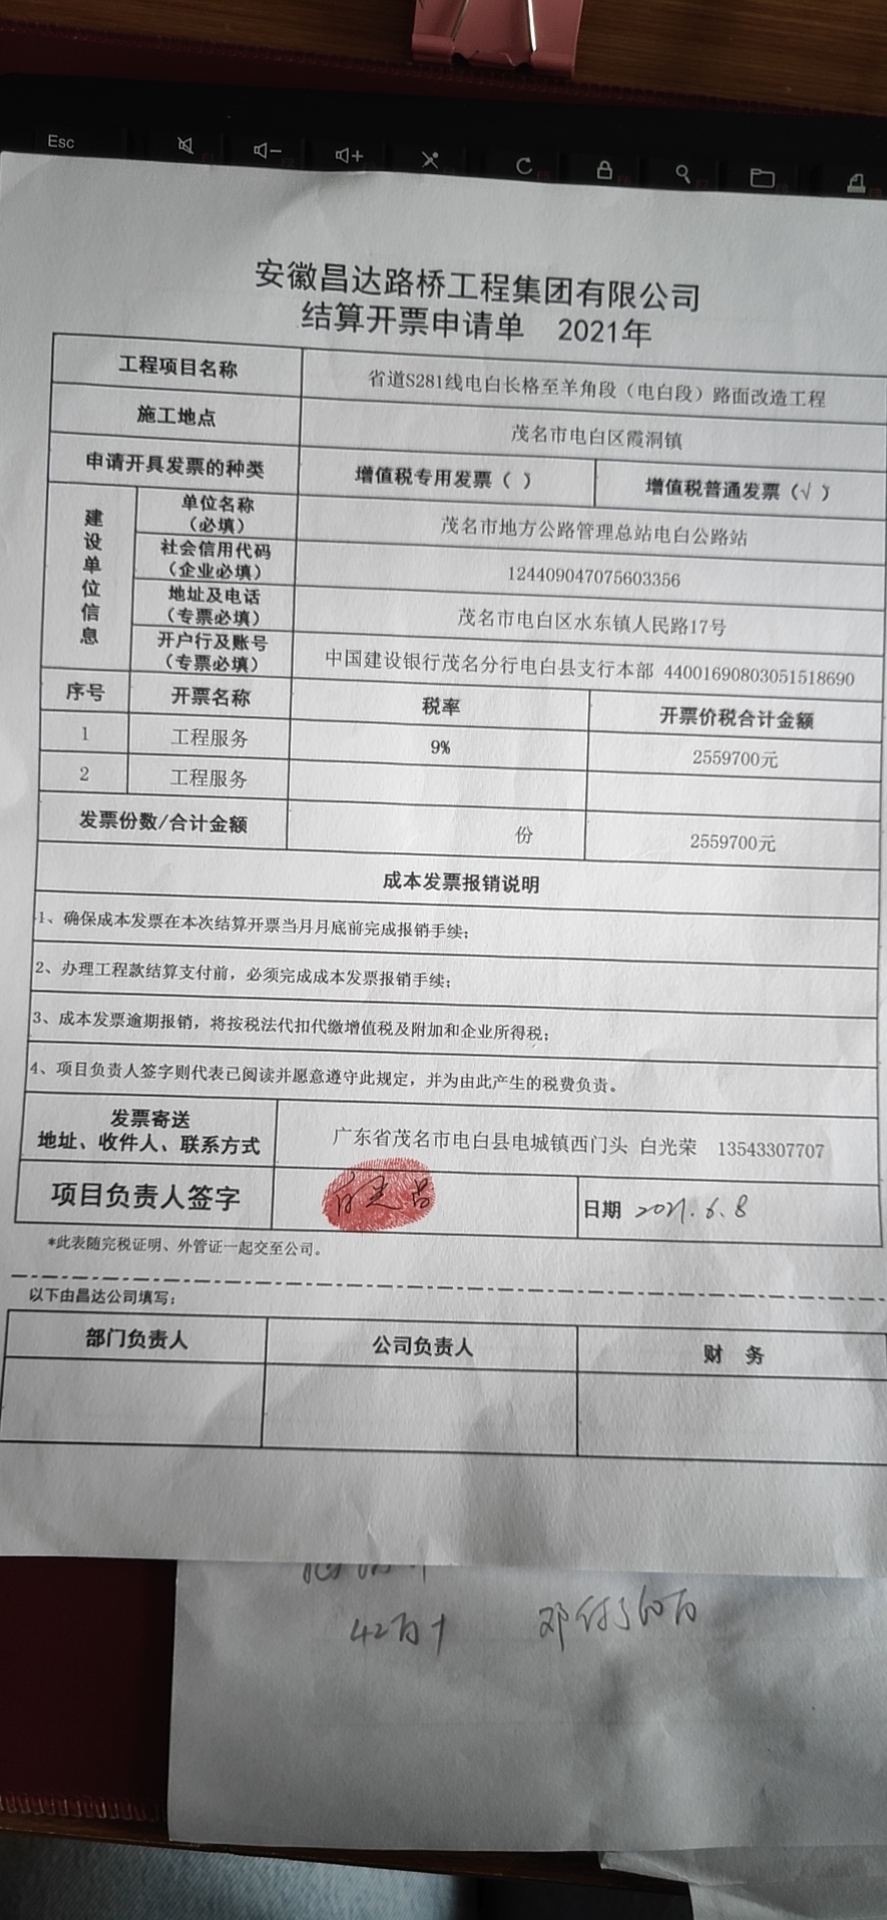 Esc
安徽昌达路桥工程集团有限公司
结算开票申请单 2021年
工程项目名称 省道S281线电白长格至羊角段（电白段）路面改造工程
施工地点 茂名市电白区霞洞镇
申请开具发票的种类 增值税专用发票（ ） 增值税普通发票（√ ）
建设单位信息
单位名称
（必填） 茂名市地方公路管理总站电白公路站
社会信用代码
（企业必填） 124409047075603356
地址及电话
（专票必填） 茂名市电白区水东镇人民路17号
开户行及账号
（专票必填） 中国建设银行茂名分行电白县支行本部 44001690803051518690
序号 开票名称 税率 开票价税合计金额
1 工程服务 9% 2559700元
2 工程服务
发票份数/合计金额 份 2559700元
成本发票报销说明
1、确保成本发票在本次结算开票当月月底前完成报销手续；
2、办理工程款结算支付前，必须完成成本发票报销手续；
3、成本发票逾期报销，将按税法代扣代缴增值税及附加和企业所得税；
4、项目负责人签字则代表已阅读并愿意遵守此规定，并为由此产生的税费负责。
发票寄送
地址、收件人、联系方式 广东省茂名市电白县电城镇西门头 白光荣 13543307707
项目负责人签字 日期 2021.6.8
*此表随完税证明、外管证一起交至公司。
以下由昌达公司填写：
部门负责人 公司负责人 财 务